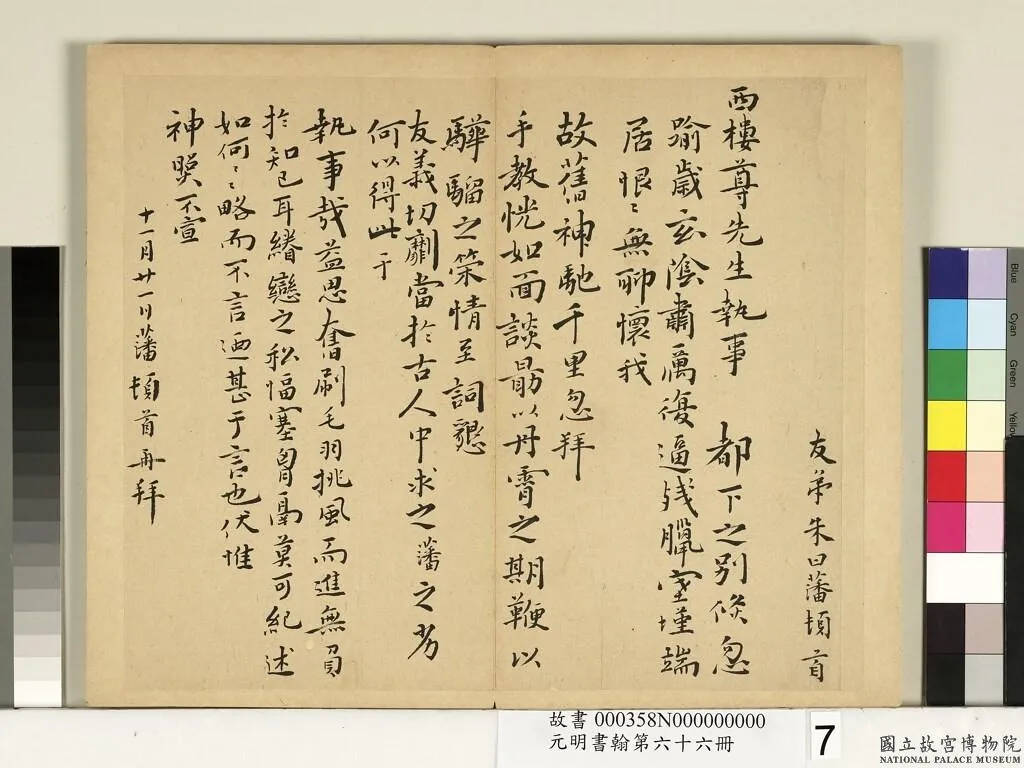 友弟朱曰藩頓首
西樓尊先生執事
都下之別倏忽
踰歲玄陰肅厲復逼殘臘室堇端
居恨〻無聊懷我
故舊神馳千里忽拜
手教恍如面談勗以丹霄之期鞭以
驊騮之策情至詞懇
友義切劘當於古人中求之藩之劣
何以得此于
執事哉益思奮刷毛羽挑風而進無負
於知己耳綣戀之私愊塞胷鬲莫可紀述
如何〻〻略而不言迺甚于言也伏惟
神煚不宣
十一月廿一日藩頓首再拜
故書 000358N000000000
元明書翰第六十六冊
7
國立故宮博物院
NATIONAL PALACE MUSEUM
Blue
Cyan
Green
Yellow